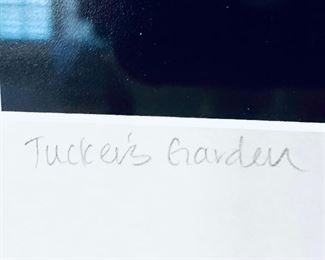 Tucker's Garden